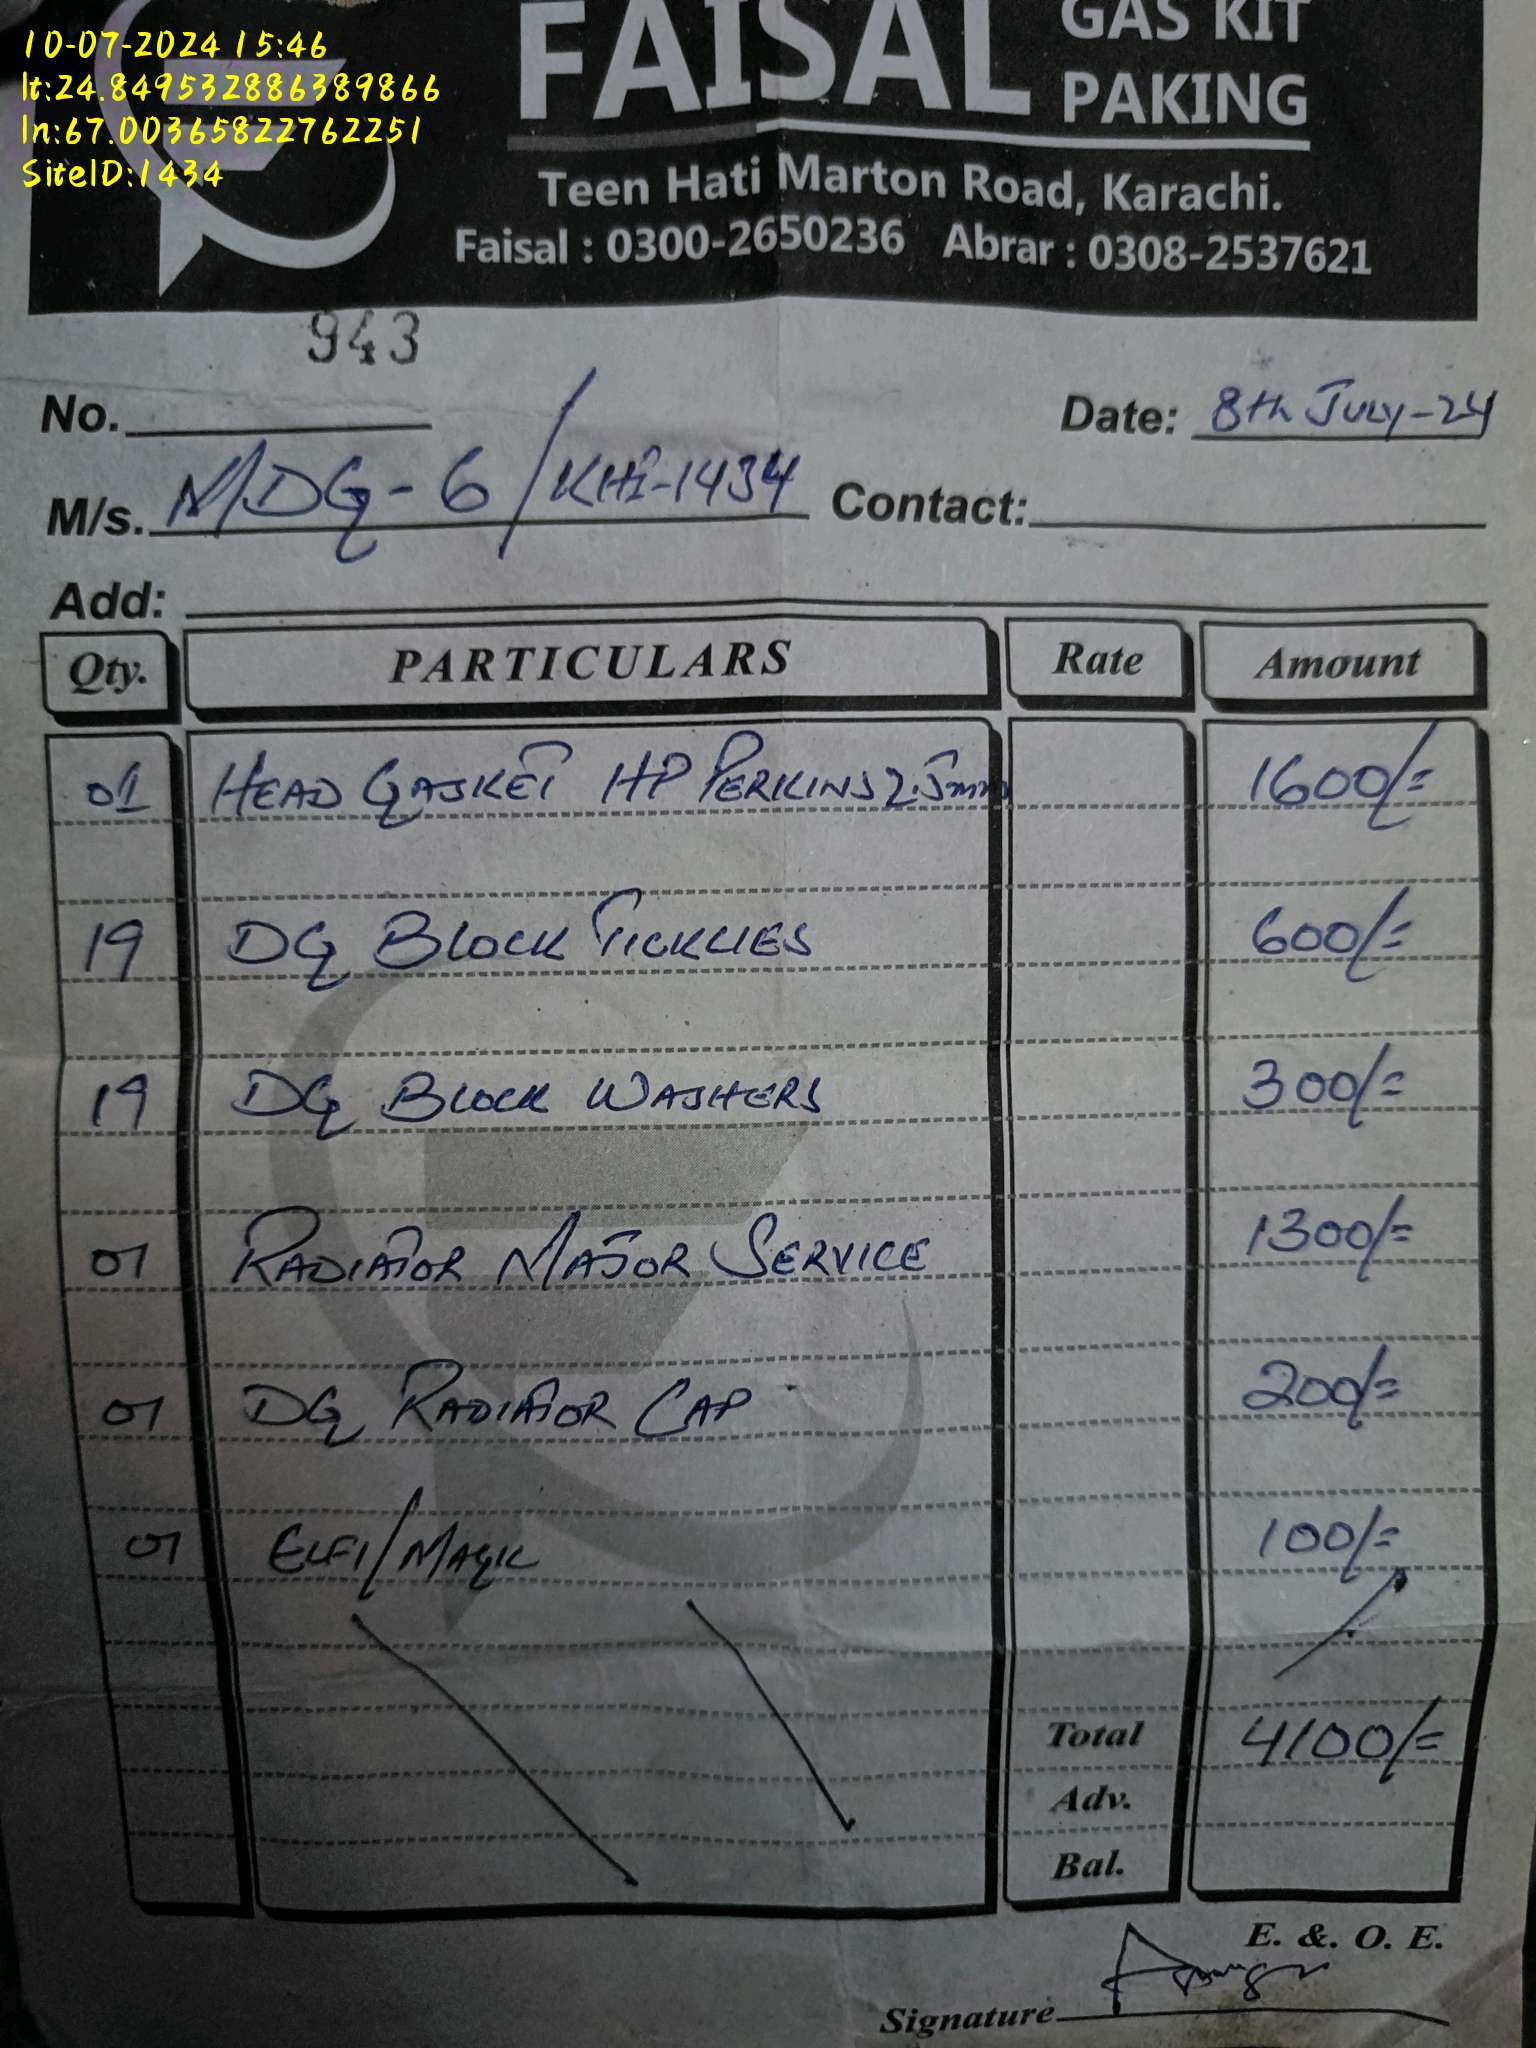 10-07-2024 15:46
lt:24.849532886389866
ln:67.00365822762251
SiteID:1434
FAISAL GAS KIT PAKING
Teen Hati Marton Road, Karachi.
Faisal : 0300-2650236 Abrar : 0308-2537621
943
No. Date: 8th JULY-24
M/s. MDG-6/KHI-1434 Contact:
Add:
Qty. PARTICULARS Rate Amount
01 HEAD GASKET HP PERKINS 2.5mm 1600/=
19 DG BLOCK TICKLIES 600/=
19 DG BLOCK WASHERS 300/=
01 RADIATOR MAJOR SERVICE 1300/=
01 DG RADIATOR CAP 200/=
01 ELFI/MAGIC 100/=
Total 4100/=
Adv.
Bal.
E. &. O. E.
Signature